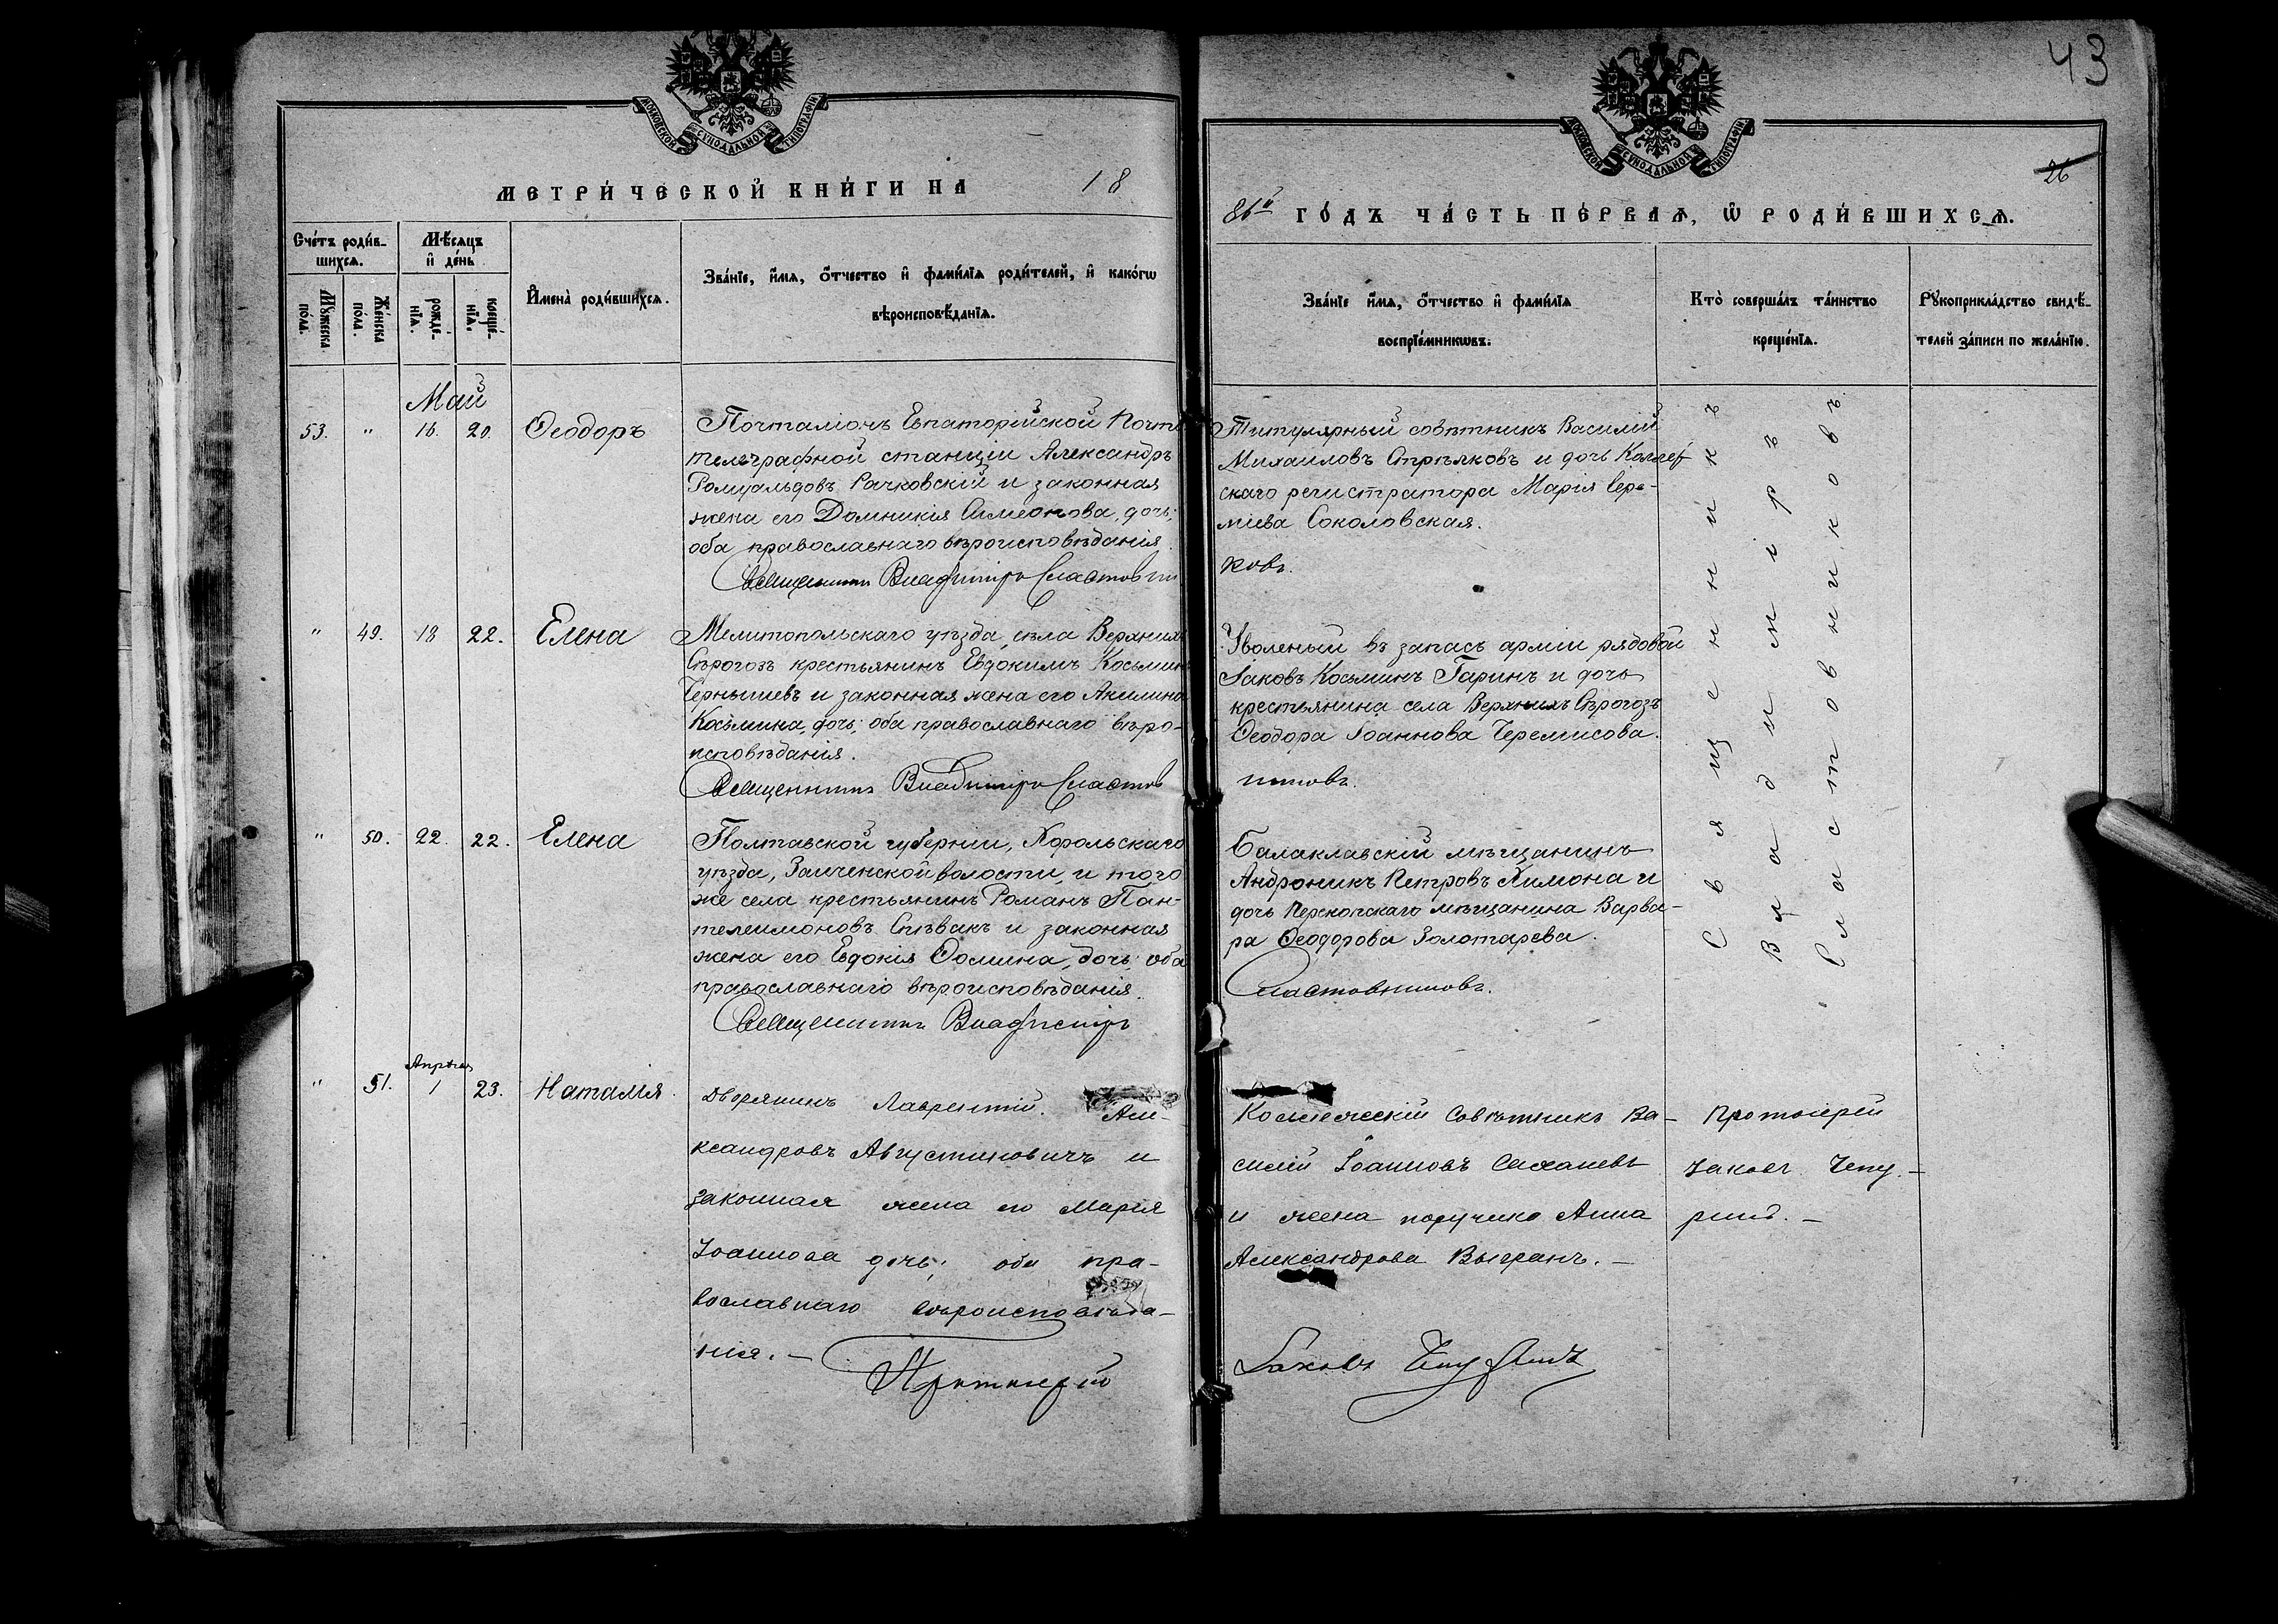 43
МОСКОВСКОЙ СѴНОДАЛЬНОЙ ТИПОГРАФІИ
МОСКОВСКОЙ СѴНОДАЛЬНОЙ ТИПОГРАФІИ
26
МЕТРИ́ЧЕСКОЙ КНИ́ГИ НА 18
86й ГО́ДЪ ЧА́СТЬ ПЕ́РВАЯ, Ѡ РОДИ́ВШИХСѦ.
Сче́тъ роди́в-
шихсѧ.
Мѣ́сѧцъ
и де́нь
Мꙋжеска по́ла.
Же́нска по́ла.
рожде́-нїѧ.
креще́-нїѧ.
Имена̀ роди́вшихсѧ.
Зва́нїе, и́мѧ, о́тчество и фами́лїѧ роди́телей, и како́гѡ
вѣроисповѣ́данїѧ.
Зва́нїе и́мѧ, о́тчество и фами́лїѧ
воспрїе́мникѡвъ.
Кто̀ соверша́лъ та́инство
креще́нїѧ.
Рꙋкоприкла́дство свидѣ́-
телей за́писи по жела́нїю.
Май
53. " 16. 20. Ѳеодоръ
Почталіонъ Евпаторійской Почто
телеграфной станціи Александръ
Ромуальдовъ Рачковскій и законная
жена его Домникія Симеонова, дочь;
оба православнаго вѣроисповѣданія.
Священникъ Владиміръ Сластовни
Титулярный совѣтникъ Василій
Михаиловъ Стрѣлковъ и дочь Коллеж
скаго регистратора Марія Іере-
міева Соколовская.
ковъ.
" 49. 18 22. Елена
Мелитопольскаго уѣзда, села Верхнихъ
Сѣрогозъ крестьянинъ Евдокимъ Косьминъ
Чернышевъ и законная жена его Акилина
Косьмина, дочь; оба православнаго вѣро-
исповѣданія.
Священникъ Владиміръ Сластов
Уволеный въ запасъ арміи рядовой
Іаковъ Косьминъ Гаринъ и дочь
крестьянина села Верхнихъ Сѣрогозъ
Ѳеодора Іоаннова Черемисова.
никовъ.
" 50. 22. 22. Елена
Полтавской губерніи, Хорольскаго
уѣзда, волости, и того
же села крестьянинъ Романъ Пан-
телеимоновъ Спѣвакъ и законная
жена его Евдокія Ѳомина, дочь; оба
православнаго вѣроисповѣданія.
Священникъ Владиміръ
Балаклавскій мѣщанинъ
Андроникъ Петровъ Химона и
дочь Перекопскаго мѣщанина Варва-
ра Ѳеодорова Золотарева.
Сластовниковъ.
Священникъ
Владиміръ
Сластовниковъ.
" 51. Апрѣля 1 23. Наталія.
Дворянинъ Лаврентій Але-
ксандровъ Августиновичъ и
законная жена его Марія
Іоаннова дочь; оба пра-
вославнаго вѣроисповѣда-
нія. —
Протоіерей
Коллежскій Совѣтникъ Ва-
силій Іоанновъ
и жена поручика Анна
Александрова Выгранъ. —
Іаковъ Чепуринъ
Протоіерей
Іаковъ Чепу-
ринъ. —